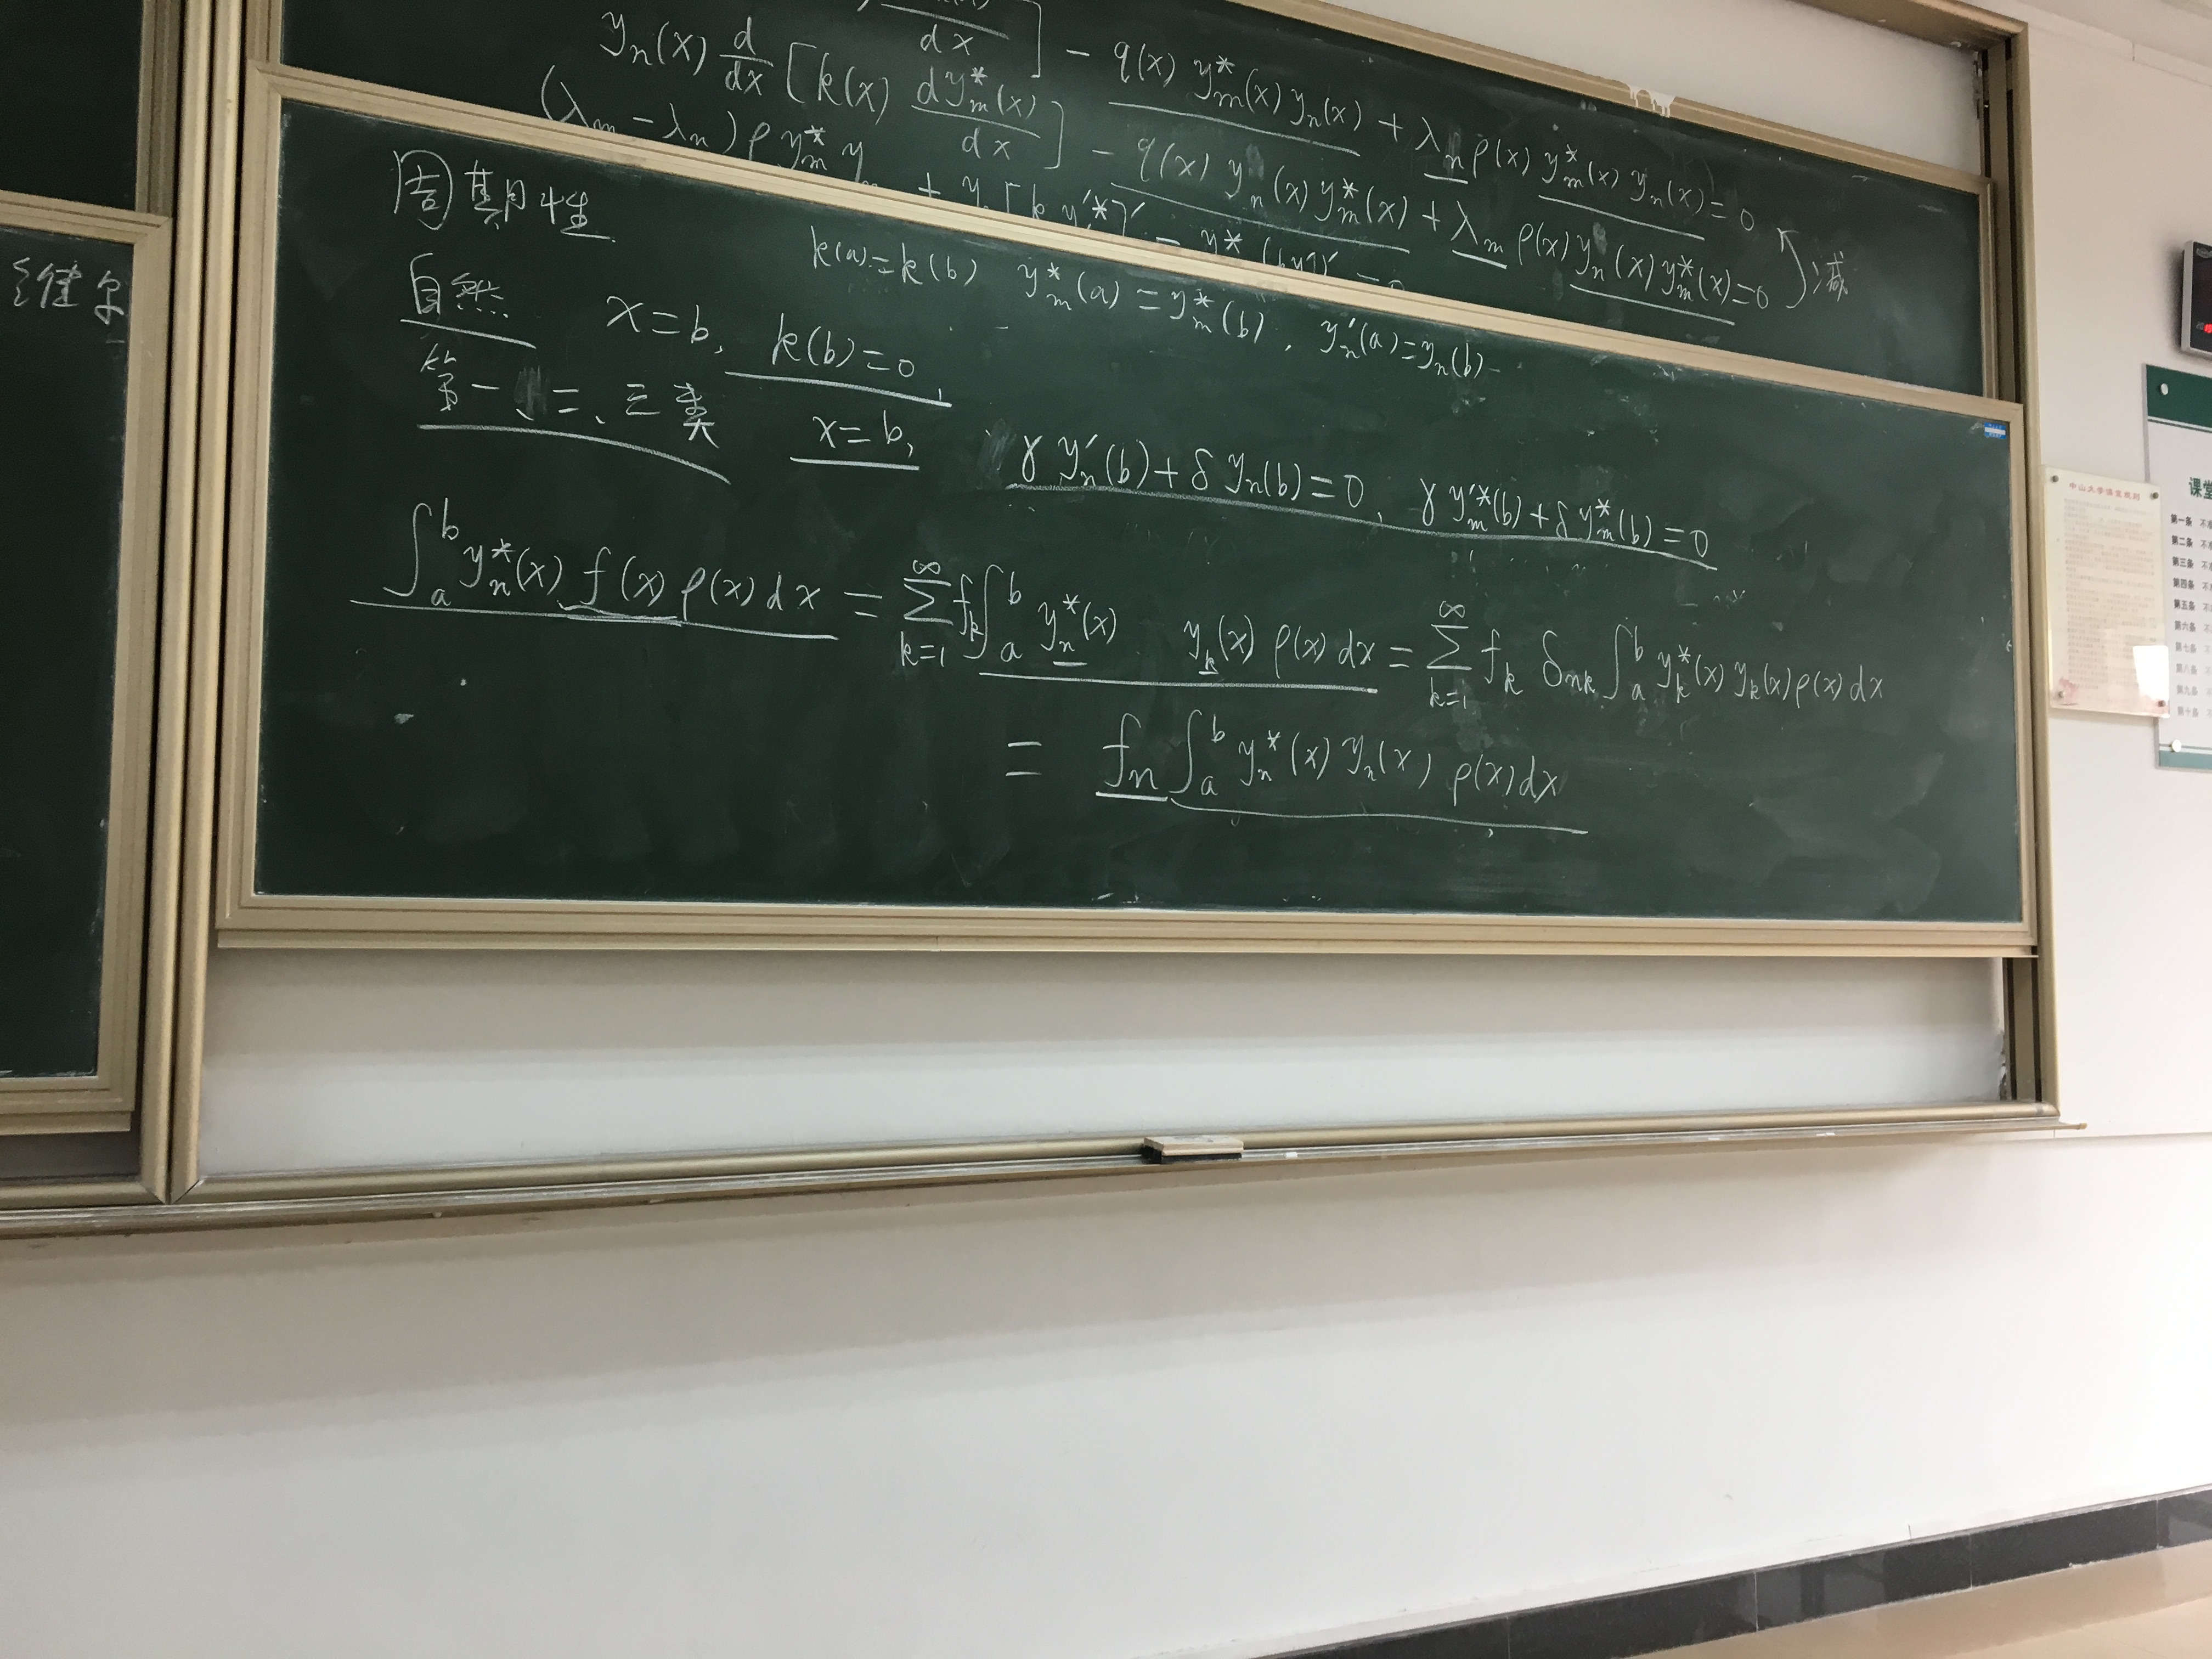 y_n(x) d/dx [k(x) dy*_m(x)/dx] - q(x) y_n(x) y*_m(x) + λ_m ρ(x) y_n(x) y*_m(x) = 0
dx ] - q(x) y*_m(x) y_n(x) + λ_n ρ(x) y*_m(x) y_n(x) = 0
减
(λ_m - λ_n) ρ y*_m y + y [k y'*]' - y* = 0
周期性 k(a)=k(b) y*_m(a) = y*_m(b), y'_n(a)=y_n(b)
自然 x=b, k(b)=0,
第一、二、三类 x=b, γ y'_n(b) + δ y_n(b) = 0, γ y'*_m(b) + δ y*_m(b) = 0
∫_a^b y*_n(x) f(x) ρ(x) dx = Σ_{k=1}^∞ f_k ∫_a^b y*_n(x) y_k(x) ρ(x) dx = Σ_{k=1}^∞ f_k δ_{nk} ∫_a^b y*_k(x) y_k(x) ρ(x) dx
= f_n ∫_a^b y*_n(x) y_n(x) ρ(x) dx
维尔
中山大学课堂规则
课堂
第一条 不
第二条 不
第三条 不
第四条 不
第五条 不
第六条
第七条
第八条
第九条
第十条